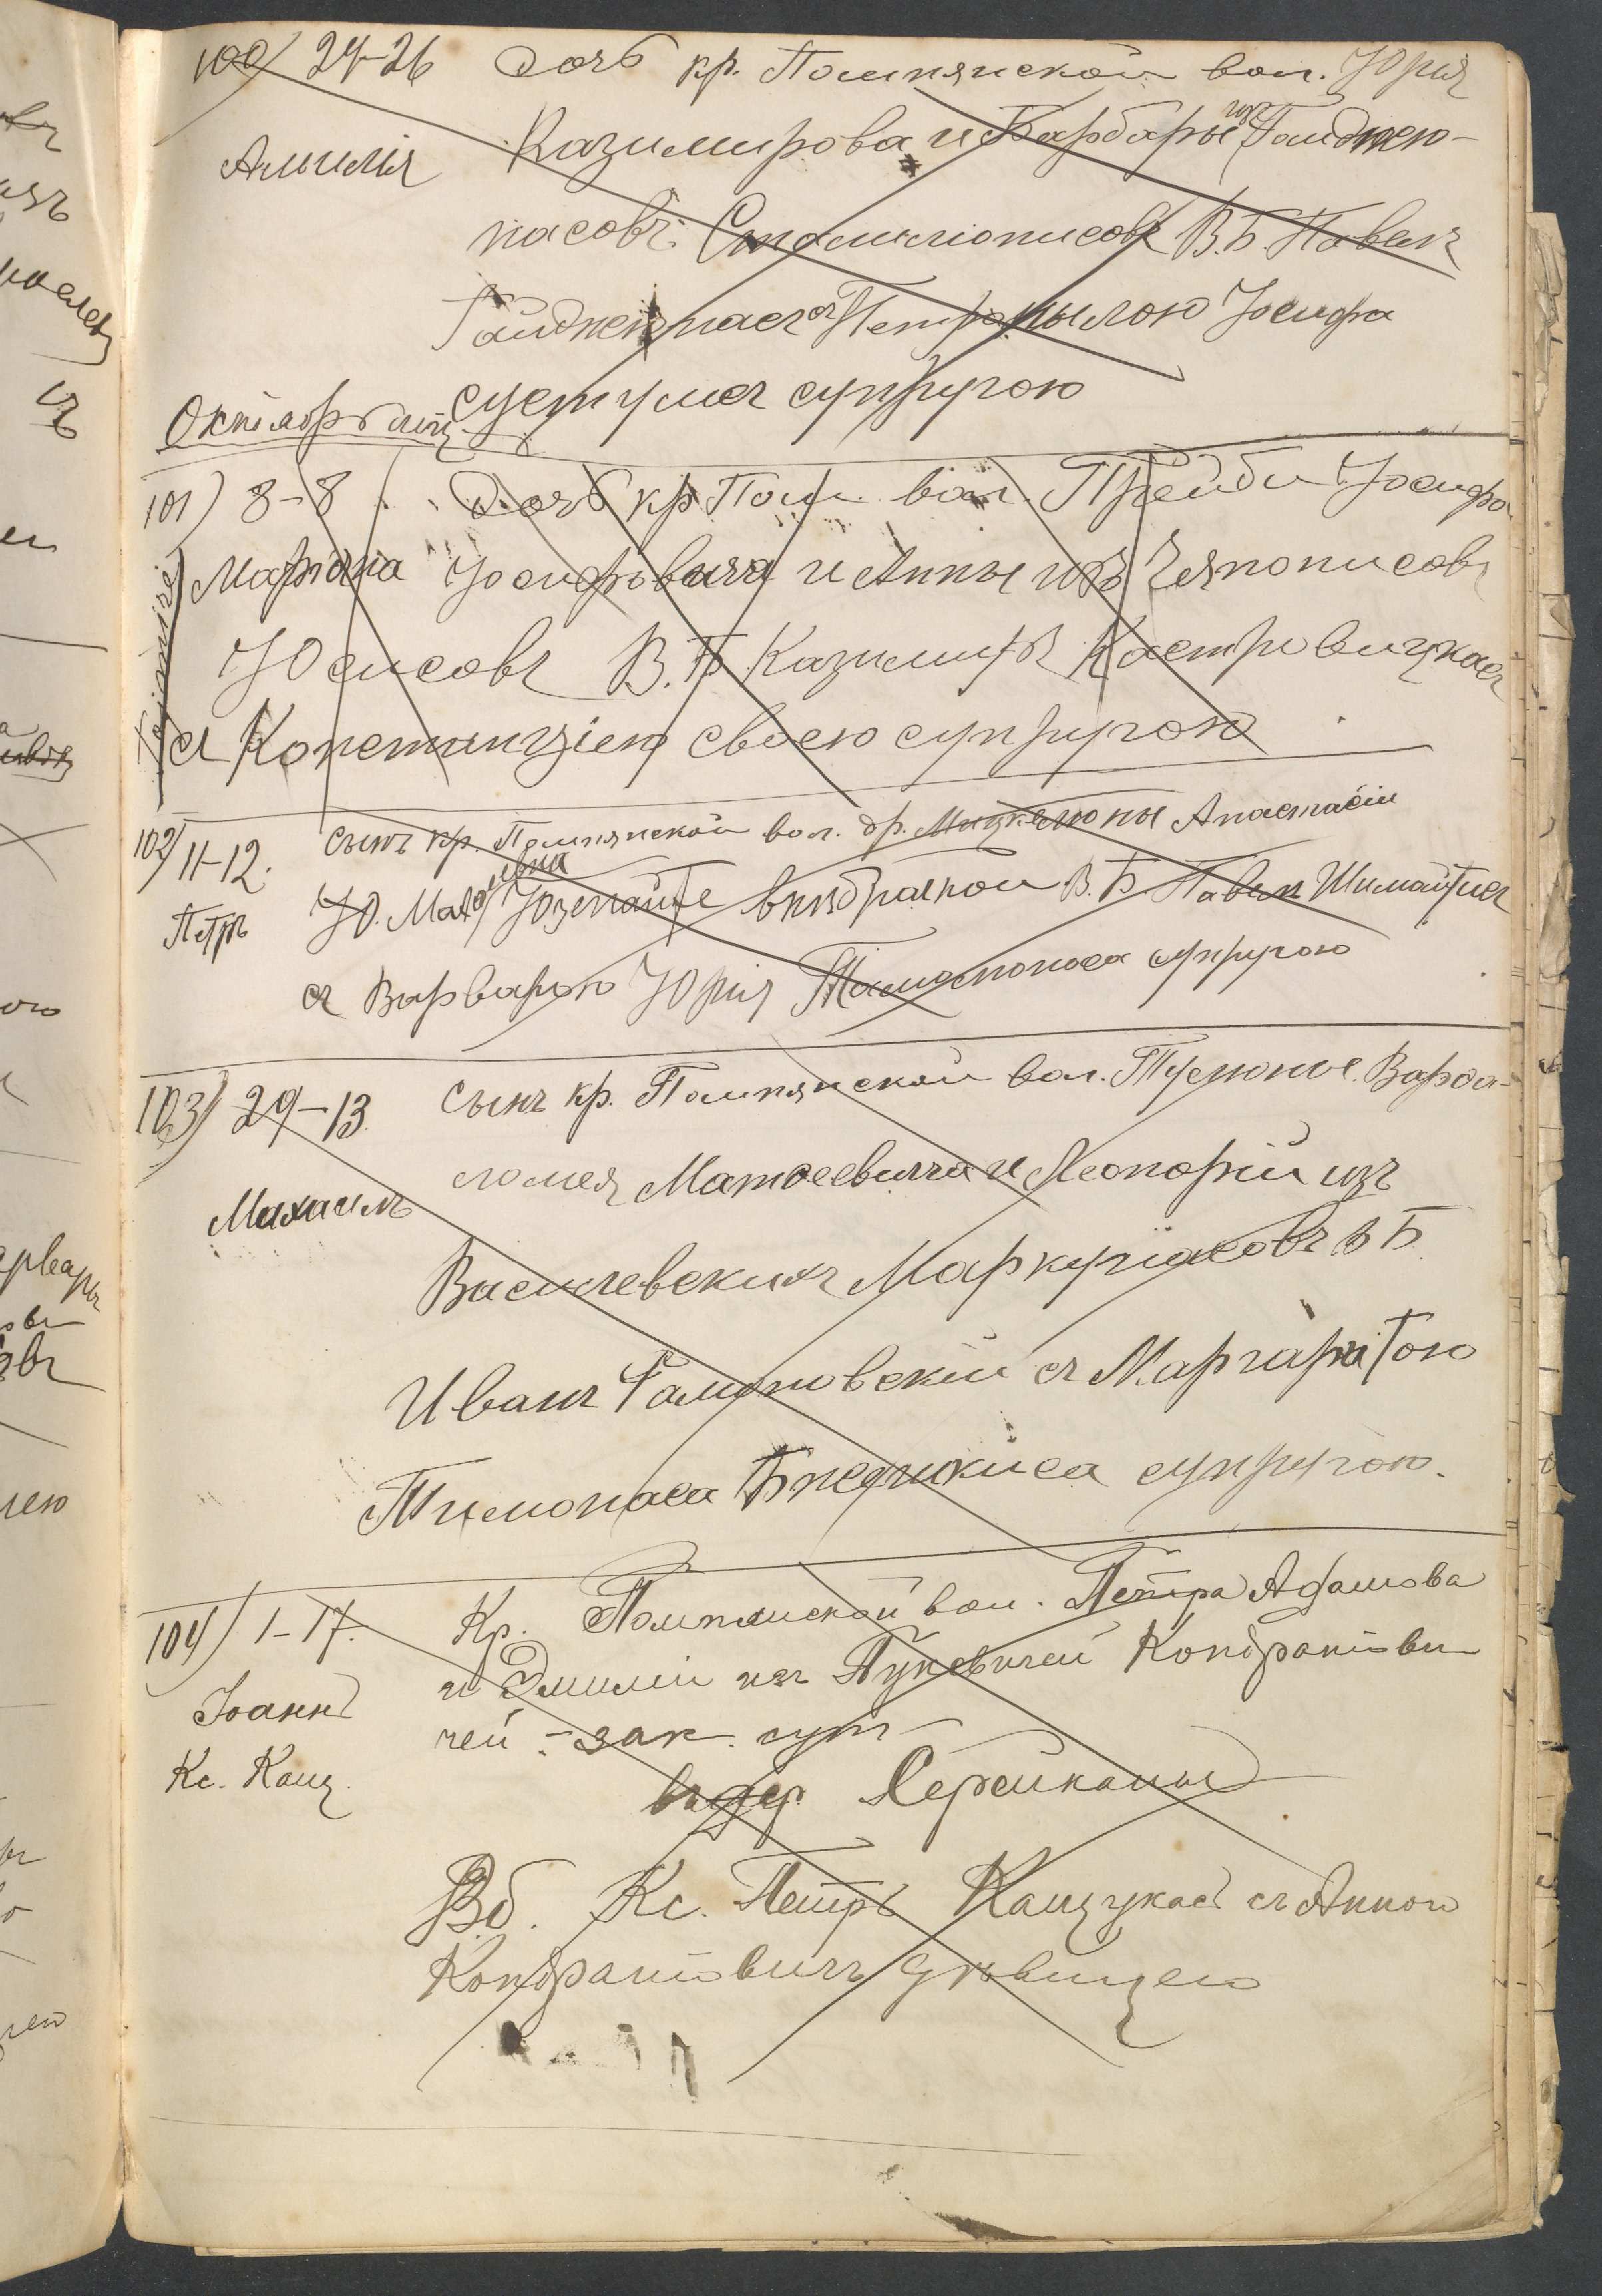 100) 24-26 Дочь кр. Помпянской вол. Юрія
Амилія Казимирова и Барбары изъ Гайдже-
насовъ Стамилюнисовъ В.Б. Павелъ
Гайдженасъ съ Петронылою Іосифа
супругою
Октябрь мѣц
101) 8-8 Дочь кр Пом. вол. Іосифа
Маріона Іосифовича и Анны изъ Чяпонисовъ
Юсисовъ В.Б. Казимиръ Кастровицкас
съ Констанціею своею супругою
102) 11-12. сынъ кр. Помпянской вол. др. Анастасіи
Петръ Юзенайте внѣбрачной В.Б. Павелъ Шимайтис
съ Варварою Юрія супругою
103) 29-13. Сынъ кр. Помпянской вол. Варфо-
Михаилъ ломея Матвеевича и Леонорій изъ
Василевскихъ Маркуріасовъ В Б.
Иванъ съ Маргаритою
Тимонаса супругою.
104) 1-17. Кр. Помпянской вол. Петра Адамова
Іоаннъ и Эмиліи изъ Пукевичей Кондратови
чей - зак. суп
Кс. Кащ. въ дер.
Вб. Кс. Петръ Кащукасъ съ Анною
Кондратовичъ дѣвицею